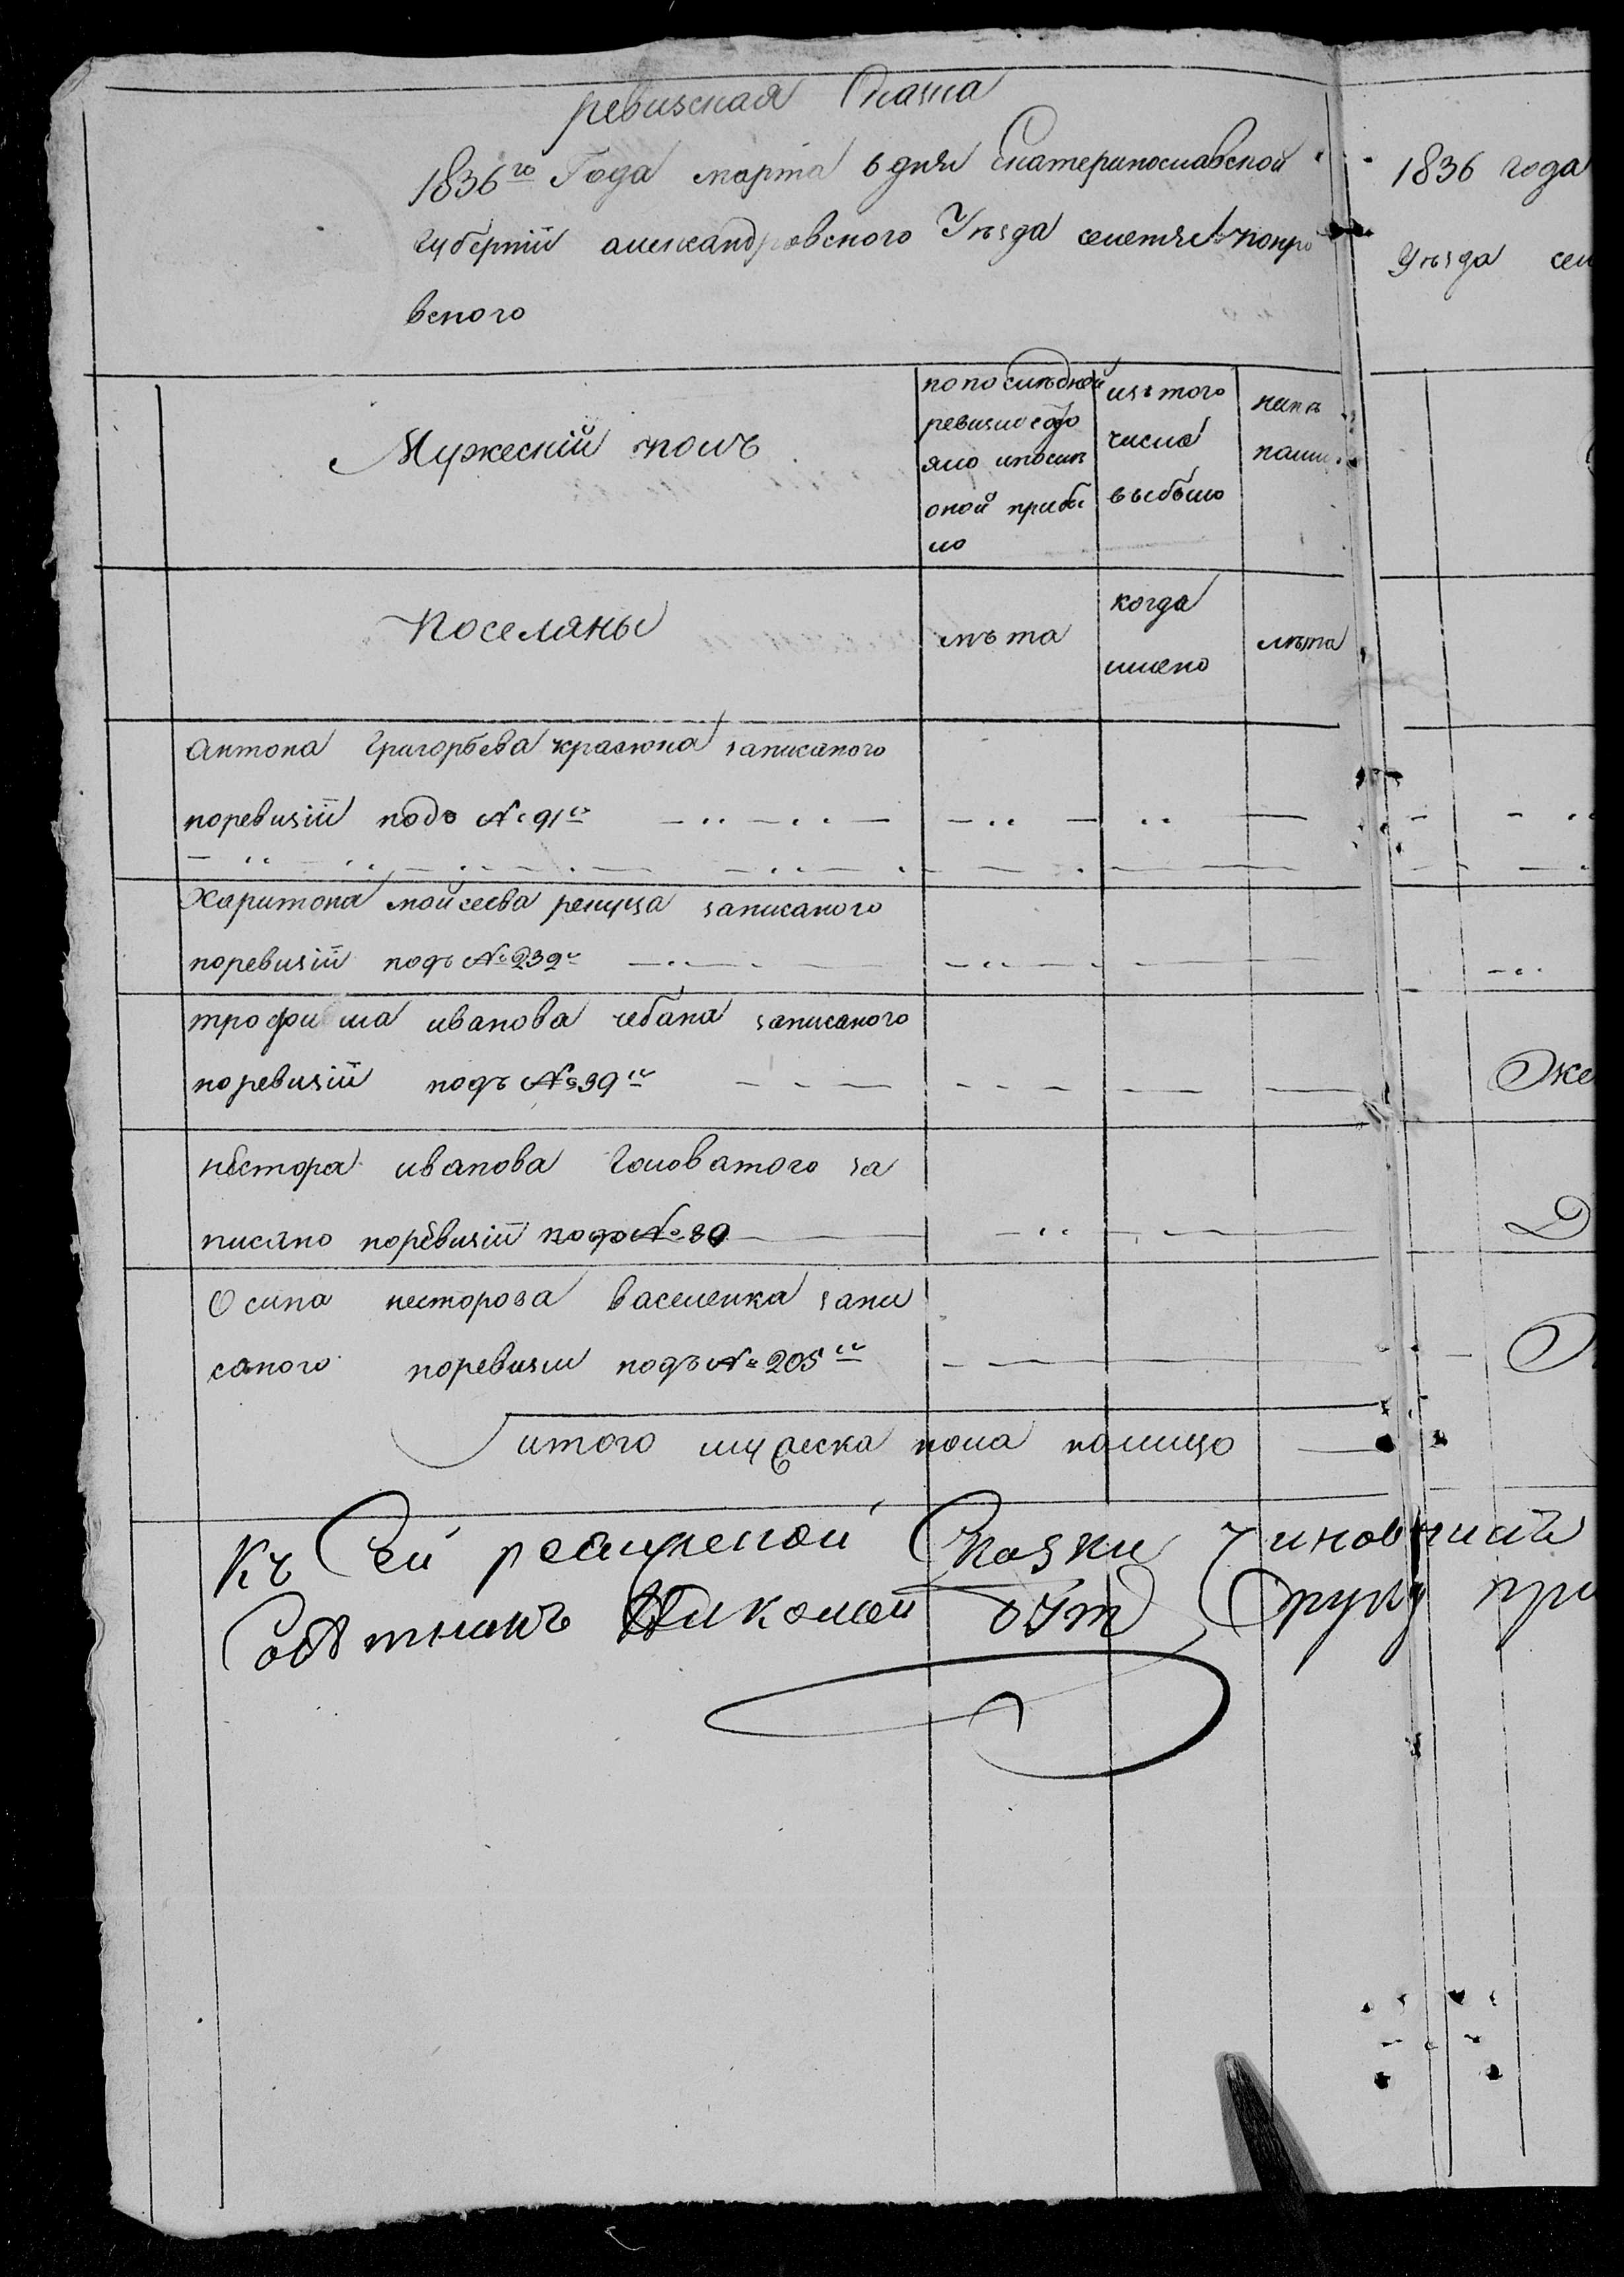 ревизская Сказка
1836го Года марта 6 дня Екатеринославской
губернiи александровского Уезда покро
вского
1836 года
Уезда сел
Мужескiй полъ
попоследней
ревизи состо
яло ипосле
оной прибы
ло
изътого
числа
выбыло
ныне
Поселяны
лъта
когда
имено
лъта
Антона Григорьева записаного
поревизiи подъ № 91м
Харитона мойсеева записаного
поревизiи подъ № 232м
трофима иванова чебана записаного
поревизiи подъ № 39м
Же
нестора иванова Головатого за
писано поревизiи подъ № 80
Д
Осипа несторова василенка запи
саного поревизи подъ № 205м
итого мужеска пола налицо
Къ Сей ревижской Скаски Чиновникъ
Николай Отъ Струку при